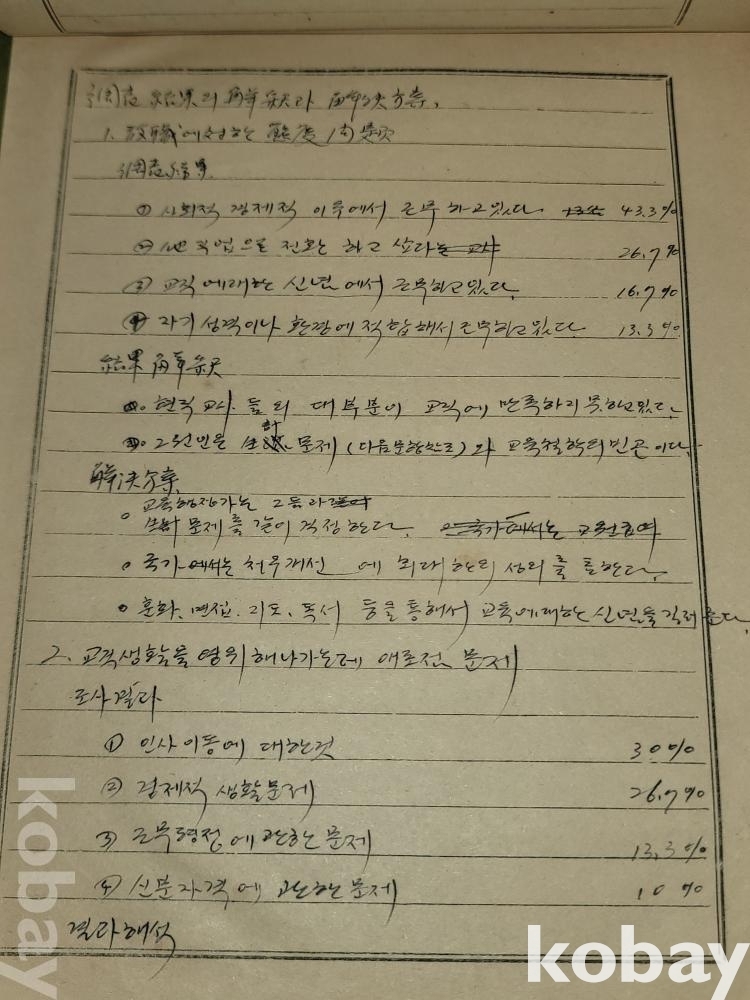 調査 結果의 解釈과 解決方案,
1. 敎職에 対한 態度 问題
調査結果
① 사회적 경제적 이유에서 근무하고있다. 43.3%
② 他직업으로 전환 하고 싶다 26.7%
③ 교직에대한 신념에서 근무하고있다. 16.7%
④ 자기성격이나 환경에 적합해서 근무하고있다. 13.3%
結果 解釈
현직교사들의 대부분이 교직에 만족하지못하고있다.
그원인은 生計 문제 (다음문항참조)와 교육철학의빈곤이다.
解決方案
교육행정가는 그들과
문제를 같이 걱정한다.
국가에서는 처우개선에 최대한의 성의를 다한다.
훈화, 면접, 지도, 독서 등을 통해서 교육에대한 신념을길러준다.
2. 교직생활을 영위해나가는데 애로점 문제
조사결과
① 인사이동에 대한것 30%
② 경제적 생활문제 26.7%
③ 근무평정에 관한 문제 13.3%
④ 신분자격에 관한 문제 10%
결과해석
kobay
kobay